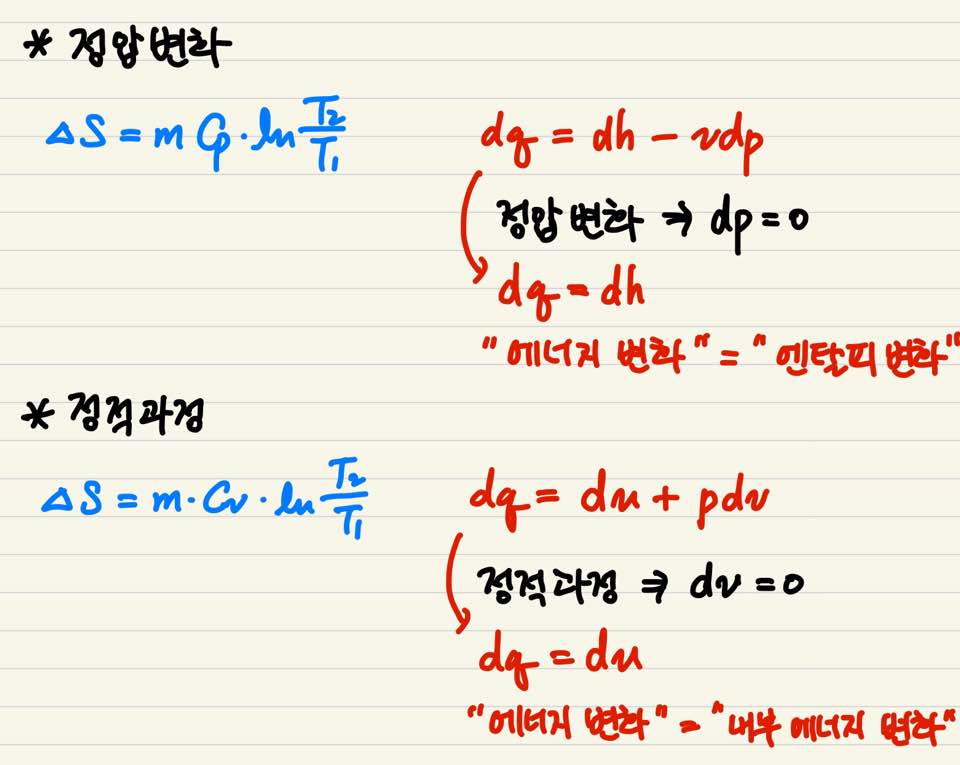 * 정압변화
ΔS = m Cp · ln T₂/T₁
dq = dh − vdp
정압변화 ⇒ dp = 0
dq = dh
"에너지 변화" = "엔탈피변화"
* 정적과정
ΔS = m · Cv · ln T₂/T₁
dq = du + pdv
정적과정 ⇒ dv = 0
dq = du
"에너지 변화" = "내부 에너지 변화"